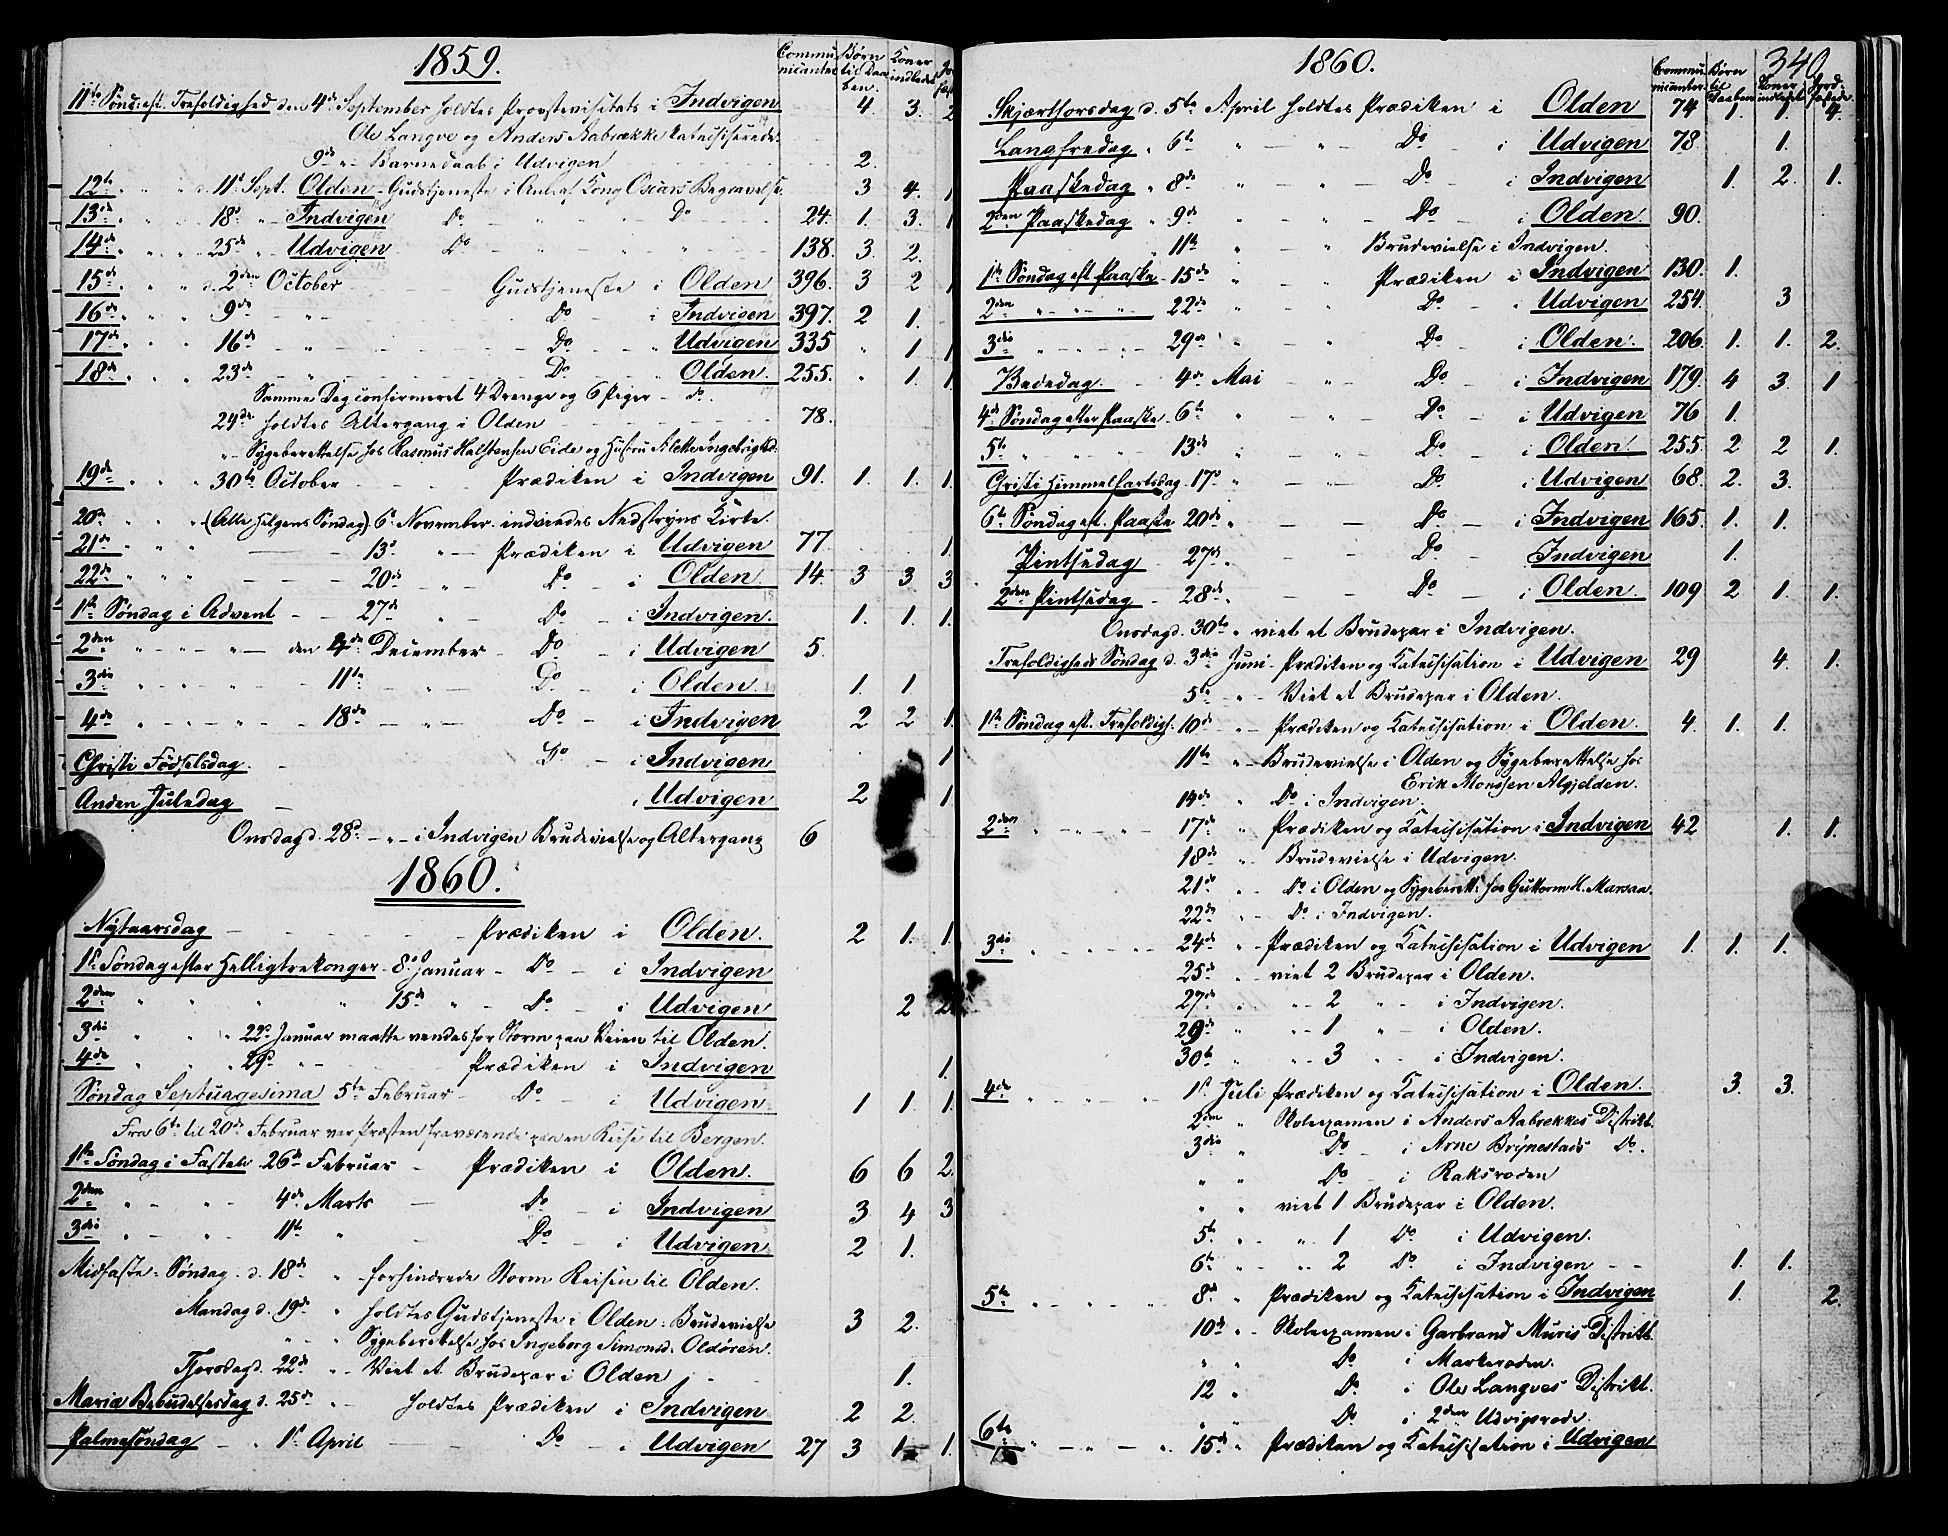 1859.
Communicanter Børn til Daaben. Koner indledet
11te Sønd: eft. Trefoldighed den 4de September holdtes Provstevisitats i Indvigen 4 3. 2
Ole Langve og Anders Aabrække katechiserede.
9de " Barnedaab i Udvigen 2.
12te " " " d. 11te Sept. Olden - Gudstjeneste i Anl. af Kong Oscars Begravelse. 3 4. 1
13de " " 18de " Indvigen Do " " Do 24. 1. 3. 1
14de " " 25de " Udvigen Do " " 138. 3. 2.
15de " " d. 2den October Gudstjeneste i Olden 396. 3 2 1
16de " " 9de " - Do - i Indvigen 397. 2 1.
17de " " 16de " - Do - " Udvigen 335 " 1 1
18de " " 23de - " - Do - " Olden. 255. " 1 1.
Samme Dag confirmeret 4 Drenge og 6 Piger - do.
24de holdtes Altergang i Olden - 78.
" Sygeberettelse hos Rasmus Halstensen Eide og Hustru Alette Ingebrigtsd.
19de " " 30te October - Prædiken i Indvigen 91. 1. 1. 1.
20de " " " (Alle Helgens Søndag) 6te November. indviedes Nedstryns Kirke.
21de " " - - 13de " - Prædiken i Udvigen 77 1.
22de " " " - - 20de " Do - i Olden. 14. 3 3 3
1ste Søndag i Advent - - 27de " Do - i Indvigen. 1. 1. 1.
2den " - " - " - den 4de December - Do - i Udvigen 5.
3die " - " - " - 11te - " - Do - i Olden. 1. 1.
4de " - " - " - 18de - " - Do - i Indvigen 2 2 1.
Christi Fødselsdag. - Do - i Indvigen 1
Anden Juledag - i Udvigen 2 1.
Onsdag d. 28de - " - i Indvigen Brudevielse og Altergang 6
1860.
Nytaarsdag - - - Prædiken i Olden. 2 1. 1.
1ste Søndag efter Helligtrekonger - 8de Januar - Do - i Indvigen
2den " " " " 15de " - Do - i Udvigen 2 2
3die " " " 22de Januar maatte vendes for Storm paa Veien til Olden.
4de " " " 29de " - Prædiken i Indvigen 1.
Søndag Septuagesima 5te Februar - Do - i Udvigen. 1 1. 1.
Fra 6te til 20de Februar var Præsten fraværende paa en Reise til Bergen.
1ste Søndag i Faste - 26de Februar - Prædiken i Olden. 6 6 2.
2den " - " - 4de Marts - Do - i Indvigen 3 4 3
3die " - " - 11te " Do - i Udvigen 2 1.
Midfaste-Søndag d. 18de " forhindrede Storm Reisen til Olden.
Mandag d. 19de " holdtes Gudstjeneste i Olden. Brudevielse 3 2.
" " Sygeberettelse hos Ingeborg Simonsd. Oldøren.
Thorsdag d. 22de " - Viet et Brudepar i Olden - 1.
Mariæ Bebudelsesdag d. 25de " - holdtes Prædiken i Indvigen. 2 2.
Palmesøndag - " 1ste April - Do - i Udvigen 27 3 1. 1.
1860.
340
Communicanter Børn til Daaben Koner indledet Jordfæstede.
Skjærthorsdag d. 5te April holdtes Prædiken i Olden 74 1. 1. 4.
Langfredag " 6te " - " - Do i Udvigen 78. 1.
Paaskedag " 8de " - " Do - i Indvigen 1. 2. 1.
2den Paaskedag " 9de " - " Do - i Olden. 90.
" 11te " " Brudevielse i Indvigen.
1ste Søndag eft Paaske - 15de " - " Prædiken i Indvigen 130. 1.
2den " - " - " 22de " " Do - i Udvigen 254. 3
3die " - " - " - 29de " - " Do - i Olden. 206. 1. 1. 2.
Bededag. - 4de Mai - " Do - i Indvigen 179. 4 3. 1
4de Søndag efter Paaske. 6te " - - Do - i Udvigen 76 1.
5te " " " " 13de " - - Do - i Olden. 255. 2 2 1.
Christi Himmelfartsdag. 17de " - " Do - i Udvigen 68. 2. 3.
6te Søndag eft. Paaske 20de " - Do - i Indvigen 165. 1. 1.
Pintsedag - 27de " - - Do Indvigen 1.
2den Pintsedag - 28de " - - Do - i Olden. 109 2 1. 1.
Onsdag d. 30te " viet et Brudepar i Indvigen.
Trefoldigheds Søndag d. 3die Juni - Prædiken og Katechisation i Udvigen 29 4. 1.
5te " - Viet et Brudepar i Olden.
1ste Søndag eft. Trefoldigh. 10de " - Prædiken og Katechisation i Olden. 4. 1. 1.
11te " - Brudevielse i Olden og Sygeberettelse hos
Erik Monssen Alfjelden.
14de " Do i Indvigen.
2den " " " " " 17de " Prædiken og Katechisation i Indvigen 42 1. 1.
18de " - Brudevielse i Udvigen.
21de " - Do i Olden og Sygeberett: hos Guttorm H. Marsaa.
22de " - Do i Indvigen.
3die " " " " 24de " - Prædiken og Katechisation i Udvigen 1. 1. 1.
25de " - viet 2 Brudepar i Olden.
27de " " - 2 " - i Indvigen.
29de " " - 1 " - i Olden.
30te " " - 3 " - i Indvigen.
4de " " " " 1ste Juli Prædiken og Katechisation i Olden. 3. 3.
2den " Skoleexamen i Anders Aabrekkes Distrikt.
3die " Do - i Arne Brynestads Do.
" " Do - i Raksroden
" " viet 1 Brudepar i Olden.
5te " - " 1 Do i Udvigen.
6te " - " 2 Do i Indvigen - - 1. 1.
5te " " " " 8de " Prædiken og Katechisation i Indvigen 1. 2.
10de " - Skoleexamen i Garbrand Muris Distrikt.
" " Do i Markeroden.
12 " Do i Ole Langves Distrikt.
" " Do i 2den Udvigsrode.
6te " - " - " 15de " Prædiken og Katechisation i Udvigen